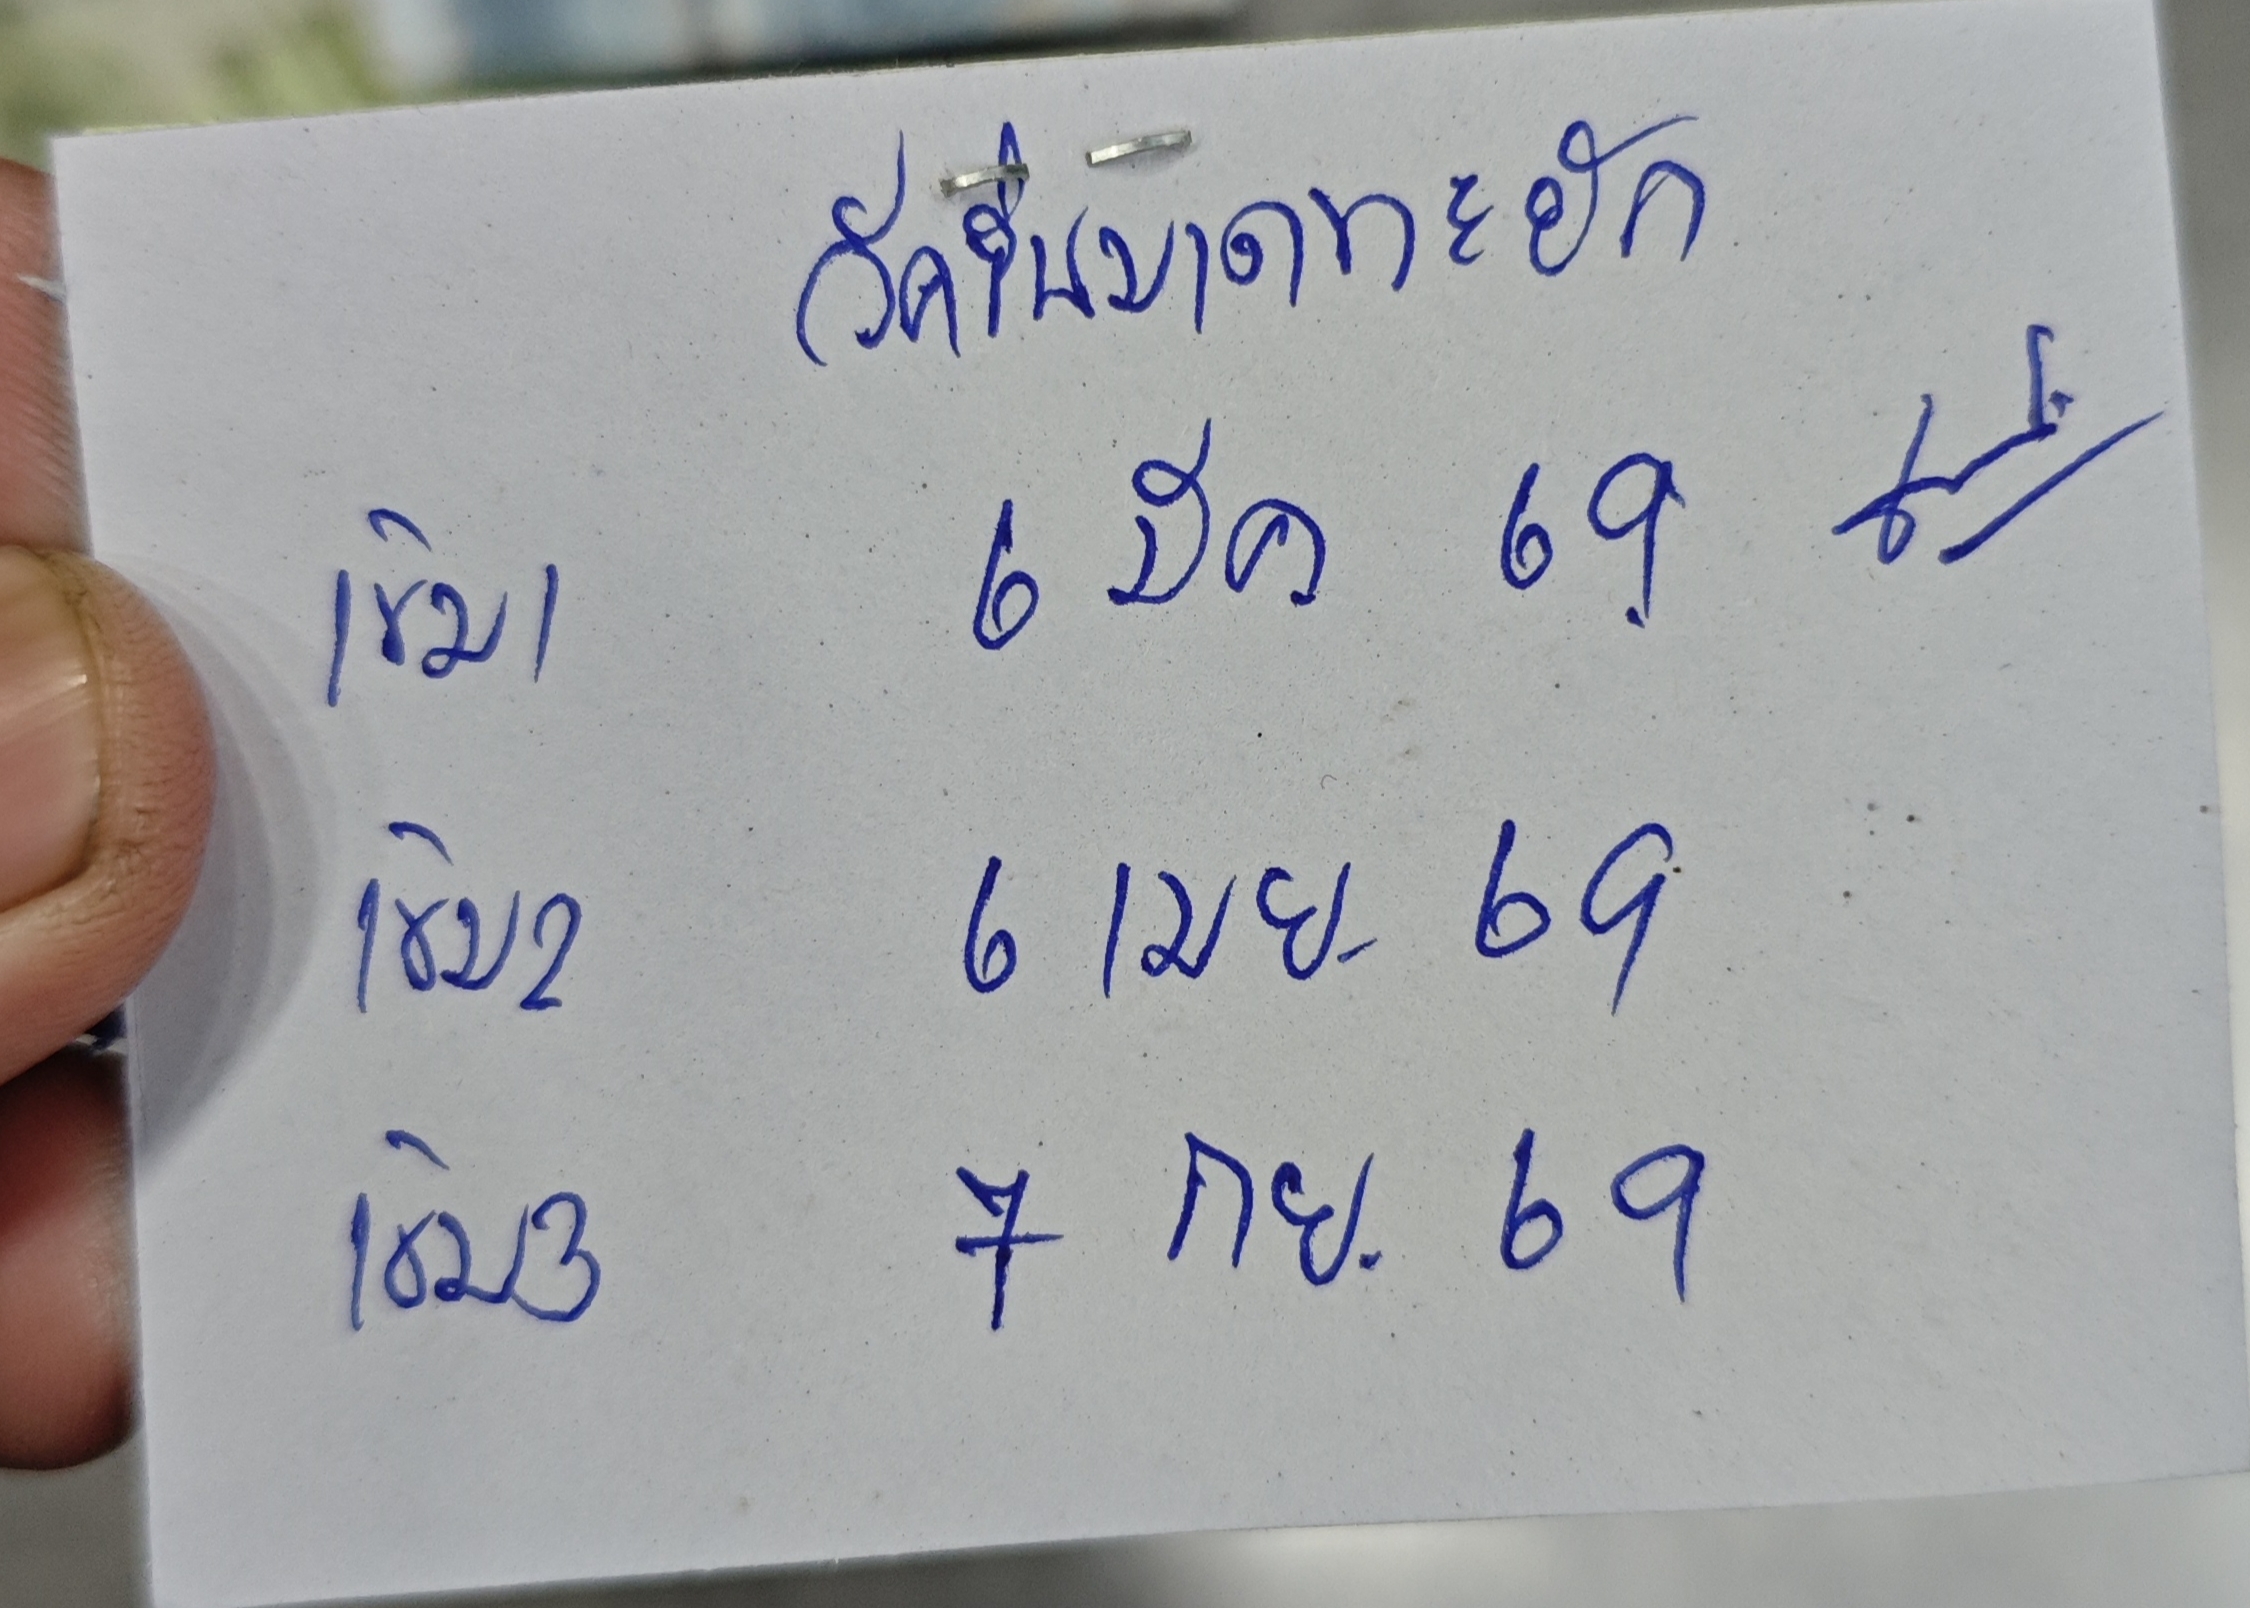 วัคซีนบาดทะยัก
เข็ม1 6 มีค 69
เข็ม2 6 เมย. 69
เข็ม3 7 กย. 69